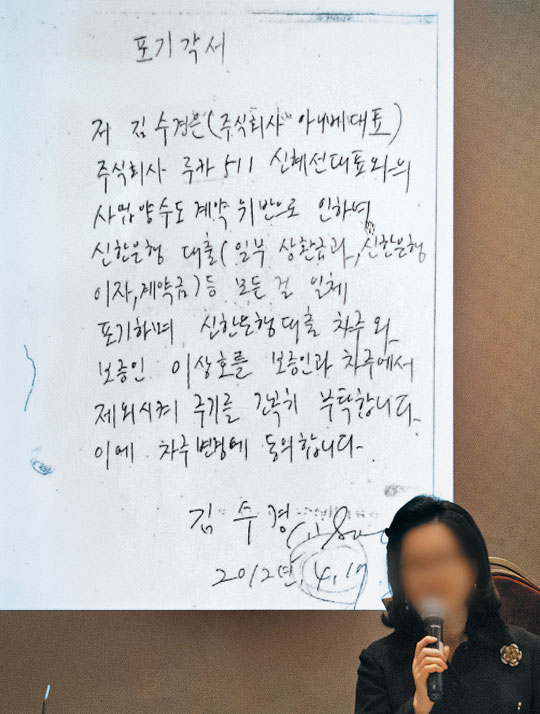 포기각서
저 김수경은(주식회사 아니베대표)
주식회사 루카511 신혜선대표와의
사업양수도계약 위반으로 인하여
신한은행 대출(일부 상환금과, 신한은행
이자,계약금)등 모든 걸 일체
포기하며 신한은행대출 차주와
보증인 이상호를 보증인과 차주에서
제외시켜 주기를 간곡히 부탁합니다.
이에 차주변경에 동의합니다.
김수경
2012년. 4. 19